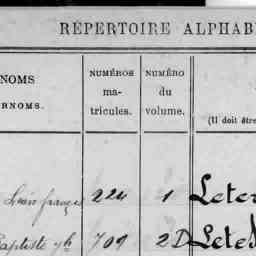 RÉPERTOIRE ALPHAB
NOMS
RNOMS.
NUMÉROS
ma-
tricules.
NUMÉRO
du
volume.
(Il doit être
Léon françois 224 1 Leter
Baptiste 709 2D Lete